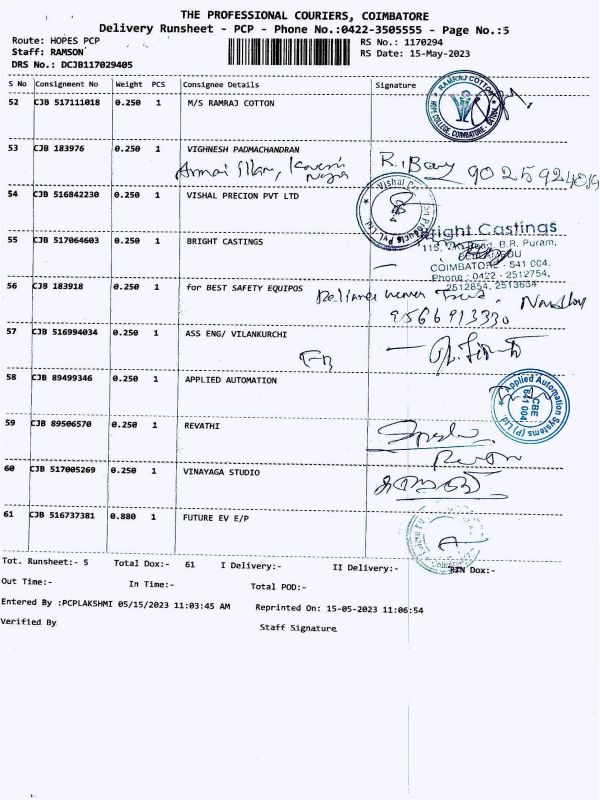 THE PROFESSIONAL COURIERS, COIMBATORE
Delivery Runsheet - PCP - Phone No.:0422-3505555 - Page No.:5
Route: HOPES PCP RS No.: 1170294
Staff: RAMSON RS Date: 15-May-2023
DRS No.: DCJB117029405
S No Consignment No Weight PCS Consignee Details Signature
52 CJB 517111018 0.250 1 M/S RAMRAJ COTTON
RAMRAJ COTTON
HOPE COLLEGE, COIMBATORE
53 CJB 183976 0.250 1 VIGHNESH PADMACHANDRAN
54 CJB 516842230 0.250 1 VISHAL PRECION PVT LTD
55 CJB 517064603 0.250 1 BRIGHT CASTINGS
Bright Castings
B.R. Puram,
COIMBATORE - 641 004.
Phone : 0422 - 2512754,
2512854, 2513654
56 CJB 183918 0.250 1 for BEST SAFETY EQUIPOS
9566913330
57 CJB 516994034 0.250 1 ASS ENG/ VILANKURCHI
58 CJB 89499346 0.250 1 APPLIED AUTOMATION
Applied Automation Systems (P) Ltd
CBE
641 004
59 CJB 89506570 0.250 1 REVATHI
60 CJB 517005269 0.250 1 VINAYAGA STUDIO
61 CJB 516737381 0.880 1 FUTURE EV E/P
Tot. Runsheet:- 5 Total Dox:- 61 I Delivery:- II Delivery:- RTN Dox:-
Out Time:- In Time:- Total POD:-
Entered By :PCPLAKSHMI 05/15/2023 11:03:45 AM Reprinted On: 15-05-2023 11:06:54
Verified By Staff Signature